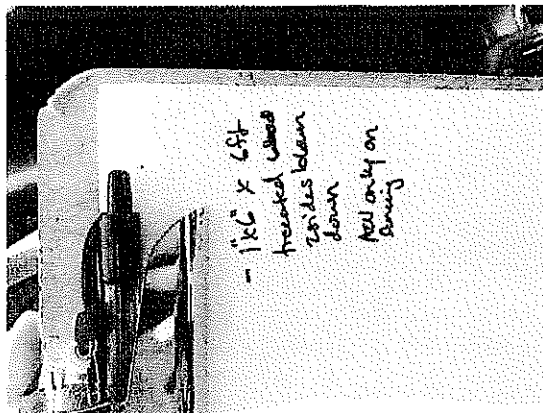 - 1"x6" x 6ft
treated wood
2sides blown
down
only on